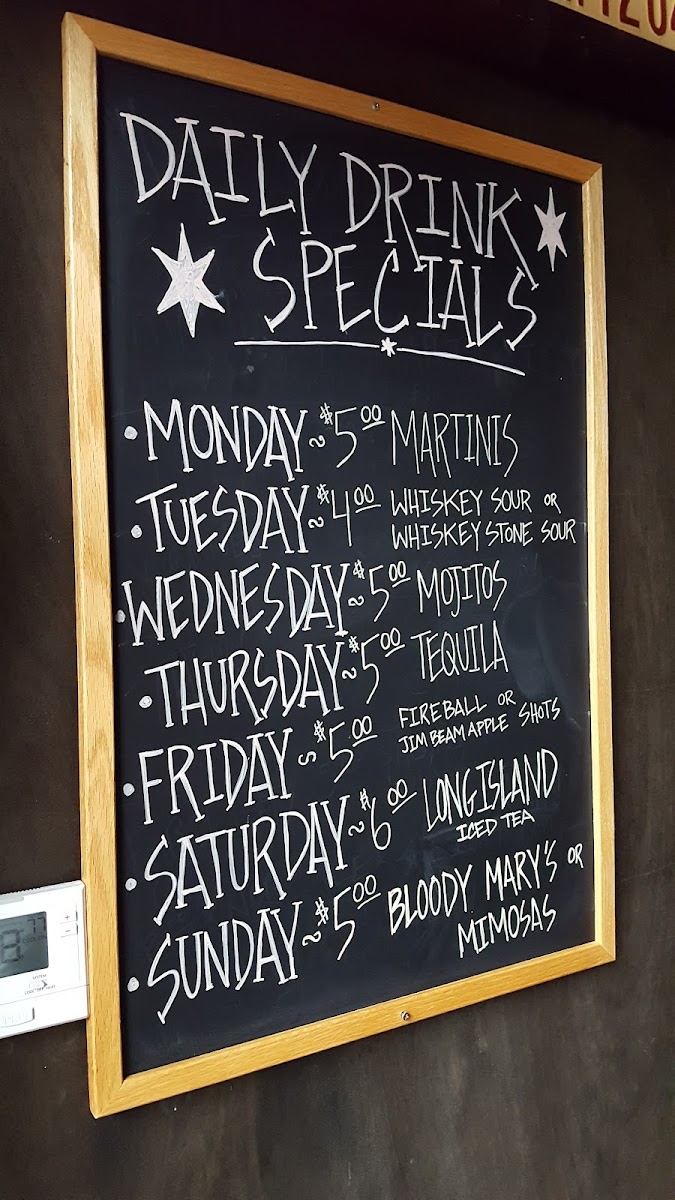 DAILY DRINK
SPECIALS
• MONDAY ~ $5.00 MARTINIS
• TUESDAY ~ $4.00 WHISKEY SOUR OR
WHISKEY STONE SOUR
• WEDNESDAY ~ $5.00 MOJITOS
• THURSDAY ~ $5.00 TEQUILA
• FRIDAY ~ $5.00 FIREBALL OR
JIM BEAM APPLE SHOTS
• SATURDAY ~ $6.00 LONG ISLAND
ICED TEA
• SUNDAY ~ $5.00 BLOODY MARY'S OR
MIMOSAS
77
SYSTEM